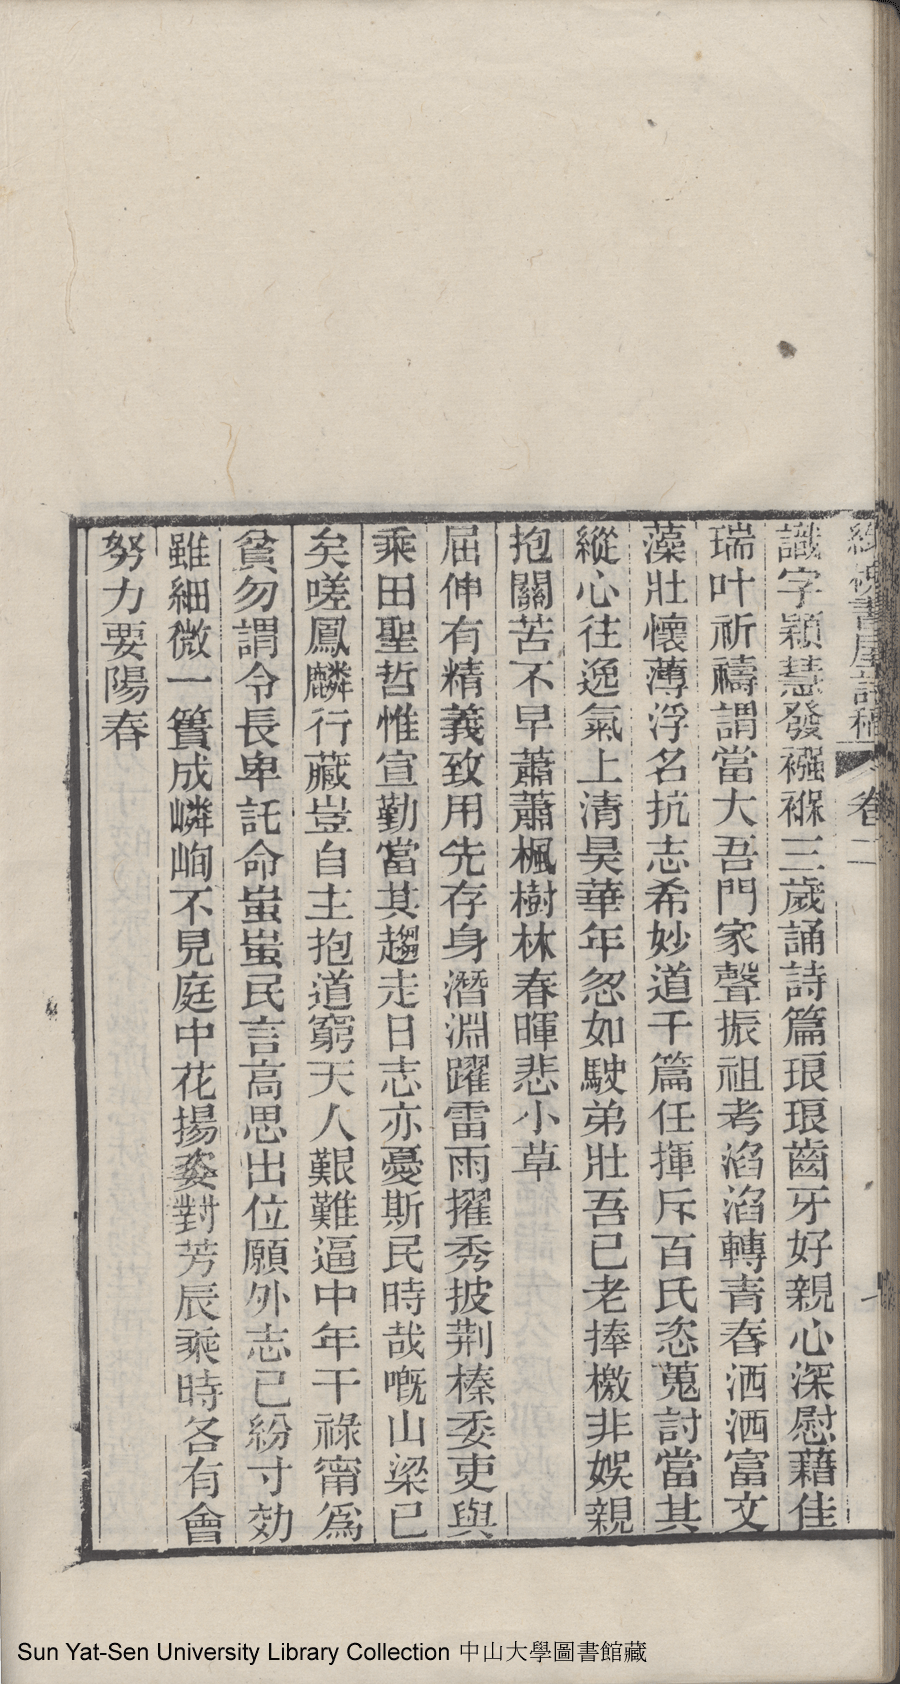 書屋詩稿 卷二
識字穎慧發襁褓三歲誦詩篇琅琅齒牙好親心深慰藉佳
瑞叶祈禱謂當大吾門家聲振祖考滔滔轉青春洒洒富文
藻壯懷薄浮名抗志希妙道千篇任揮斥百氏恣蒐討當其
縱心往逸氣上清昊華年忽如駛弟壯吾已老捧檄非娛親
抱關苦不早蕭蕭楓樹林春暉悲小草
屈伸有精義致用先存身潛淵躍雷雨擢秀披荆榛委吏與
乘田聖哲惟宣勤當其趨走日志亦憂斯民時哉嘅山梁已
矣嗟鳳麟行藏豈自主抱道窮天人艱難逼中年干祿甯爲
貧勿謂令長卑託命蚩蚩民言高思出位願外志已紛寸効
雖細微一簣成嶙峋不見庭中花揚姿對芳辰乘時各有會
努力要陽春
Sun Yat-Sen University Library Collection 中山大學圖書館藏